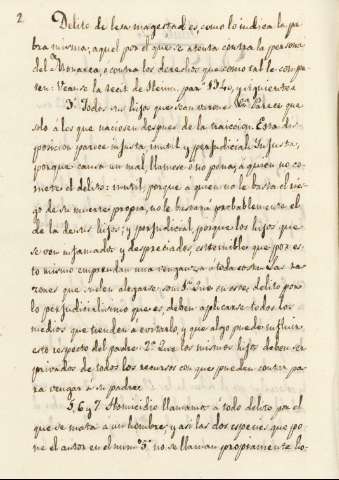 2
Delito de lesa magestad es, como lo indica la pa-
bra misma, aquel por el que se atenta contra la persona
del Monarca, o contra los derechos que como tal le compe-
ten: Vease la recit. de Heinn. par. 1340, y siguientes
3ª Todos sus hijos que sean varones Parece que
solo a los que nacieren despues de la traicion. Esta dis-
posicion parece injusta, inutil y perjudicial: Injusta,
porque causa un mal, llamese ó no pena, á quien no co-
mete el delito: inutil, porque a quien no le basta el ries-
go de su muerte propia, no le bastará probablemente el
de la de sus hijos; y perjudicial, porque los hijos que
se ven infamados y despreciados, es temible que por es-
to mismo emprendan una venganza a toda costa. Las ra-
zones que suelen alegarse, son: 1ª Que en ese delito por
lo perjudicialisimo que es, deben aplicarse todos los
medios que tienden a evitarlo, y que algo puede influir
esto respecto del padre: 2ª Que los mismos hijos deben ser
privados de todos los recursos con que puedan contar pa-
ra vengar á su padre.
5, 6 y 7. Homicidio llamamos á todo delito por el
que se mata a un hombre; y asi las dos especies que po-
ne el autor en el num. 3º no se llaman propiamente ho-